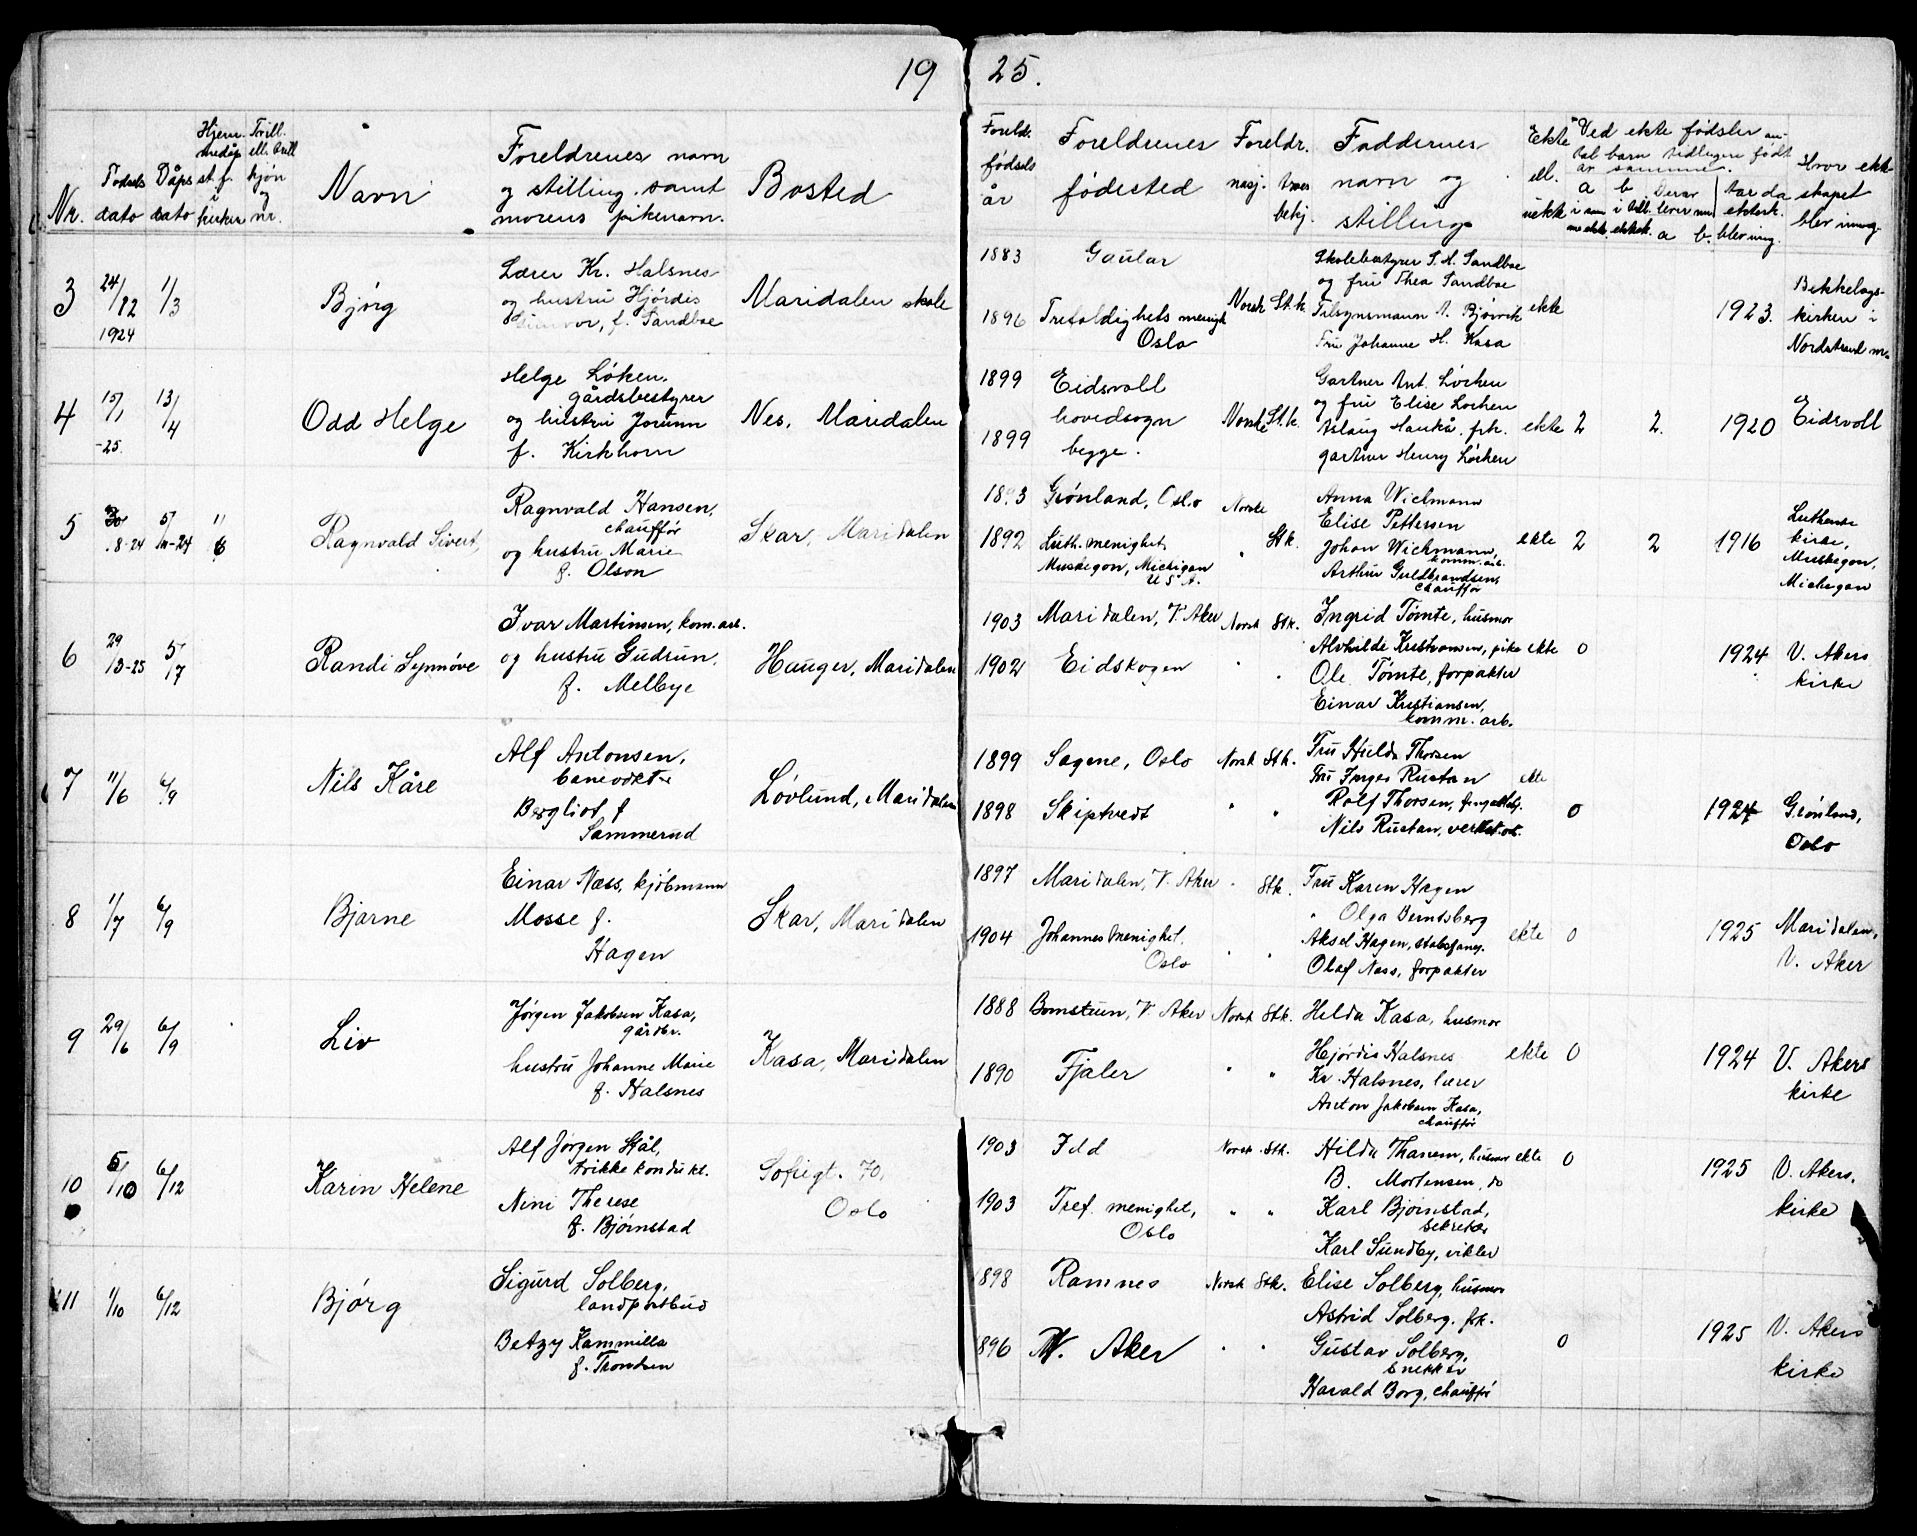 19 25.
Nr.
Fødsels dato
Dåps dato
Hjem. medåp st. f. i kirken
Tvill. ell. trill kjøn og nr.
Navn
Foreldrenes navn
og stilling, samt
morens pikenavn.
Bosted
Foreld. fødsels år
Foreldrenes
fødested
Foreldr. nasj. troes bekj.
Faddernes
navn og
stilling
Ekte ell. uekte
Ved ekte fødsler an-
tal barn tidligere født
av samme.
a b Derav
lever nu
a b.
Hvor ekte
skapet
blev inng.
3 24/12 1924 1/3 Bjørg
Lærer Kr. Halsnes
og hustru Hjørdis
f. Sandboe
Maridalen skole
1883 Gaular
1896 Trefoldighets menigh
Oslo
Norsk St. k.
Skolebestyrer S. H. Sandboe
og fru Thea Sandboe
Tilsynsmann A. Bjørvik
Fru Johanne H. Kasa
ekte 1923.
Bekkelags-
kirken i
Nordstrand m.
4 15/1 -25. 13/4 Odd Helge
Helge Løken,
gårdsbestyrer
og hustru Jorunn
f. Kirkhorn
Nes, Maridalen
1899 Eidsvoll
hovedsogn
1899 begge.
Norske St. k.
Gartner Ant. Løchen
og fru Elise Løchen
Aslaug Hauka. frk.
gartner Henry Løchen
ekte 2 2. 1920 Eidsvoll
5 30/8-24 5/10-24 11/6 Ragnvald Sivert,
Ragnvald Hansen,
chauffør
og hustru Marie
f. Olson
Skar, Maridalen
Grønland, Oslo
1892 Luth. menighet,
Muskegon, Michigan
U S A.
Norske
" Stk.
Anna Wichmann
Elise Pettersen
Johan Wichmann,
komm. arb.
Arthur Guldbrandsen,
chauffør
ekte 2 2 1916
Lutherske
kirke,
Muskegon,
Michigan
6 29/3-25 5/7 Randi Synnøve
Ivar Martinsen, kom. arb.
og hustru Gudrun,
f. Melbye
Hauger, Maridalen
1903 Maridalen, V. Aker
1902 Eidskogen
Norsk Stk.
Ingrid Tømte, husmor
Alvhilde Kristiansen, pike
Ole Tømte, forpakter
Einar Kristiansen,
komm. arb.
ekte 0 1924 V. Akers
kirke
7 11/6 6/9 Nils Kåre
Alf Antonsen,
banevokter
Bergliot f
Sammerud
Løvlund, Maridalen
1899 Sagene, Oslo
1898 Skiptvedt
Norsk Stk.
" "
Fru Hulda Thorsen
Fru Inger Rustan
Rolf Thorsen,
Nils Rustan,
ekte
0 1924 Grønland,
Oslo
8 1/7 6/9 Bjarne
Einar Næss, kjøbmann
Mosse f.
Hagen
Skar, Maridalen
1897 Maridalen, V. Aker
1904 Johannes menighet,
Oslo
" Stk.
" "
Fru Karen Hagen
" Olga Berntsberg
Aksel Hagen,
Olaf Næss, forpakter
ekte 0 1925 Maridalen,
V. Aker
9 29/6 6/9 Liv
Jørgen Jakobsen Kasa,
gårdbr.
hustru Johanne Marie
f. Halsnes
Kasa, Maridalen
1888 Bomstuen, V. Aker
1890 Fjaler
Norsk Stk.
" "
Helda Kasa, husmor
Hjørdis Halsnes
Kr. Halsnes, lærer
Anton Jakobsen Kasa,
chauffør
ekte 0 1924 V. Akers
kirke
10 5/10 6/12 Karin Helene
Alf Jørgen Stål,
trikkekondukt.
Nini Therese
f. Bjørnstad
Sofiegt. 70,
Oslo
1903 Fdd
1903 Tref. menighet,
Oslo
Norsk Stk.
" "
Hilda Thanem, husmor
B. Mortensen, do
Karl Bjørnstad,
sekretær
Karl Sundby, vikler
ekte 0 1925 V. Akers,
kirke
11 1/10 6/12 Bjørg
Sigurd Solberg,
landpostbud
Betzy Kammilla
f. Trondsen
1898 Ramnes
1896 V. Aker
Norsk Stk.
" "
Elise Solberg, husmor
Astrid Solberg. frk.
Gustav Solberg,
snekker
Harald Borg, chauffør
0 1925 V. Akers
kirke